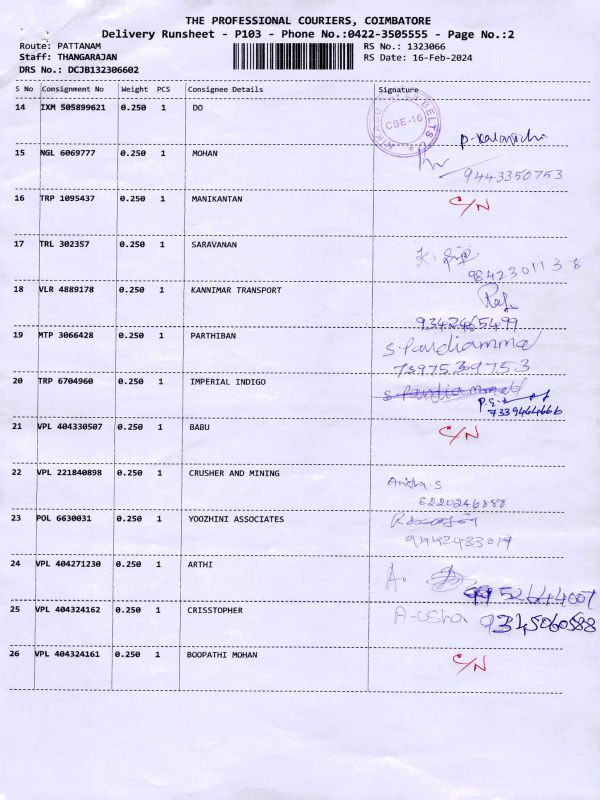 THE PROFESSIONAL COURIERS, COIMBATORE
Delivery Runsheet - P103 - Phone No.:0422-3505555 - Page No.:2
Route: PATTANAM RS No.: 1323066
Staff: THANGARAJAN RS Date: 16-Feb-2024
DRS No.: DCJB132306602
S No Consignment No Weight PCS Consignee Details Signature
14 IXM 505899621 0.250 1 DO
CBE-16 BELTS
15 NGL 6069777 0.250 1 MOHAN
9443350753
16 TRP 1095437 0.250 1 MANIKANTAN C/N
17 TRL 302357 0.250 1 SARAVANAN
9842301138
18 VLR 4889178 0.250 1 KANNIMAR TRANSPORT
9342465499
19 MTP 3066428 0.250 1 PARTHIBAN S.Pandiamma
7397539753
20 TRP 6704960 0.250 1 IMPERIAL INDIGO
7339464666
21 VPL 404330507 0.250 1 BABU C/N
22 VPL 221840898 0.250 1 CRUSHER AND MINING
6220246888
23 POL 6630031 0.250 1 YOOZHINI ASSOCIATES
9442433019
24 VPL 404271230 0.250 1 ARTHI A.
9952644007
25 VPL 404324162 0.250 1 CRISSTOPHER A-usha 9345060588
26 VPL 404324161 0.250 1 BOOPATHI MOHAN C/N